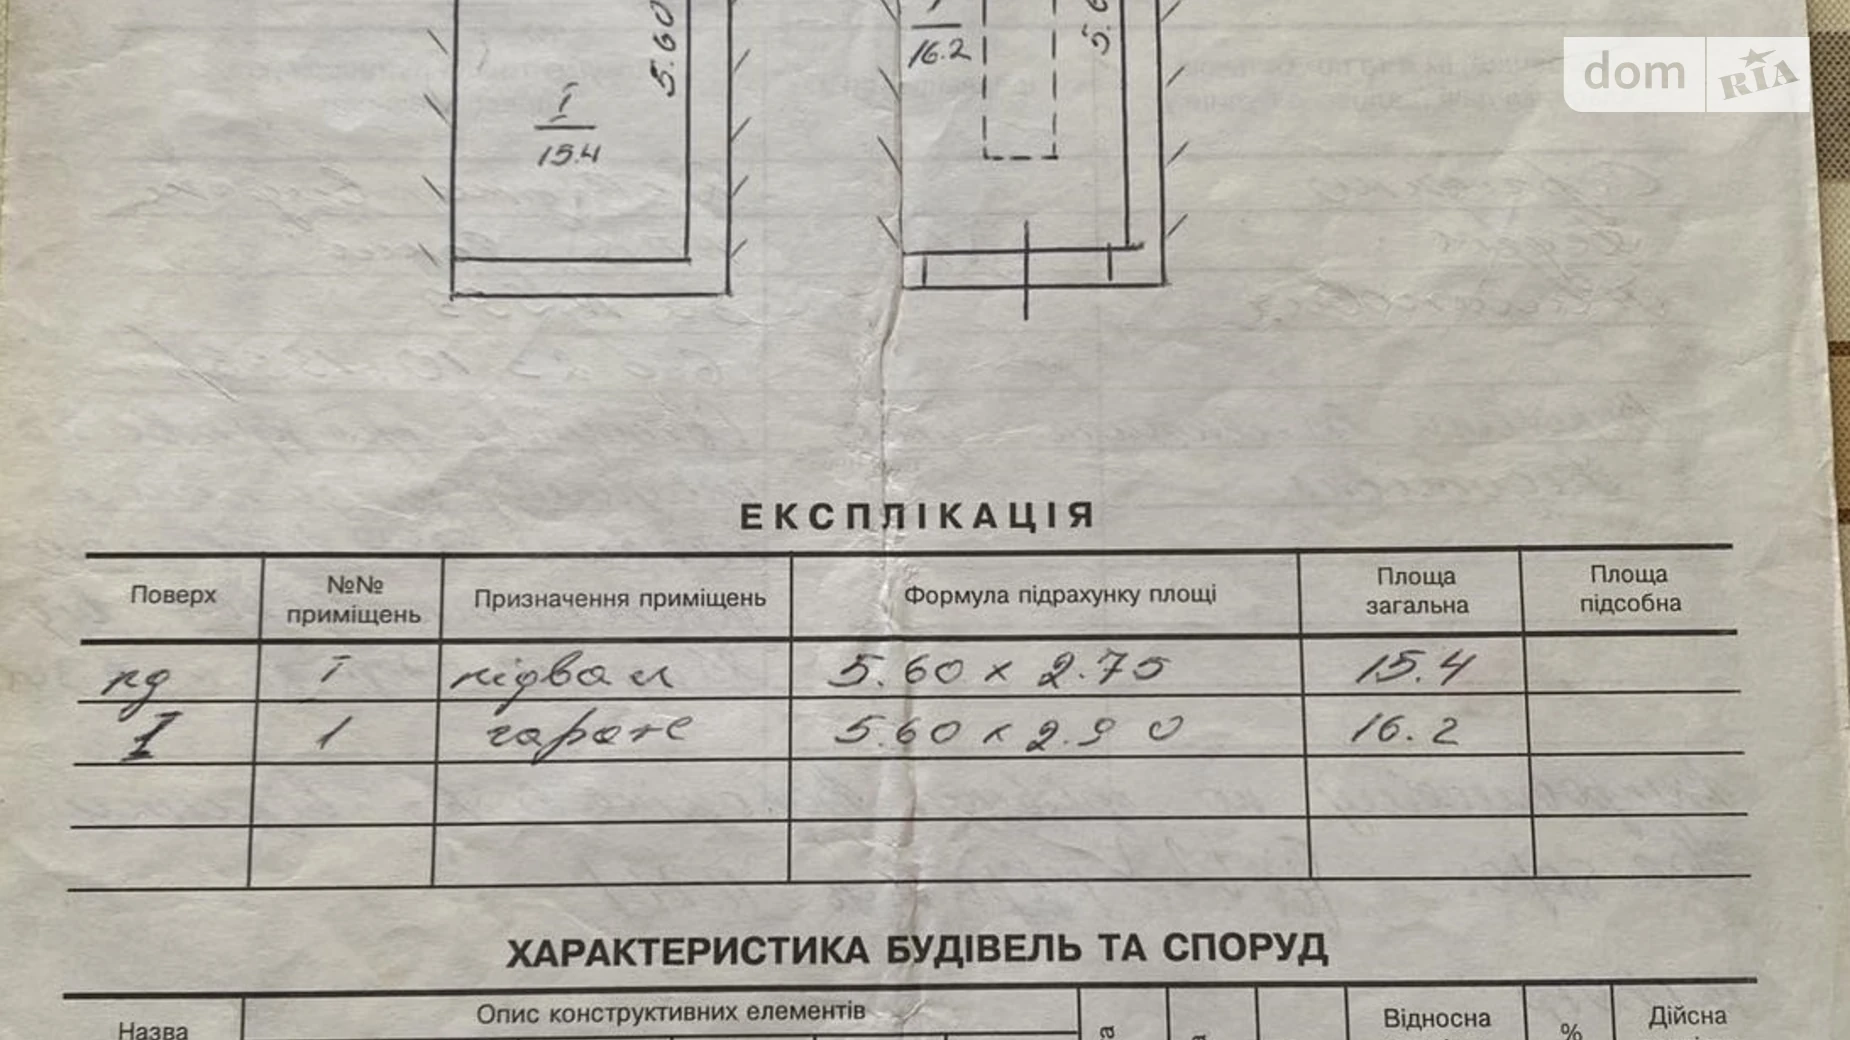 5.60
I
15.4
16.2
dom RIA
ЕКСПЛІКАЦІЯ
Поверх
№№ приміщень
Призначення приміщень
Формула підрахунку площі
Площа загальна
Площа підсобна
пд I підвал 5.60 x 2.75 15.4
I 1 гараж 5.60 x 2.90 16.2
ХАРАКТЕРИСТИКА БУДІВЕЛЬ ТА СПОРУД
Назва
Опис конструктивних елементів
Відносна
%
Дійсна